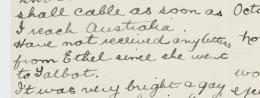 shall cable as soon as
I reach Australia.
Have not received any letters
from Ethel since she went
to Talbot.
It was very bright & gay
Octo
ho
wo